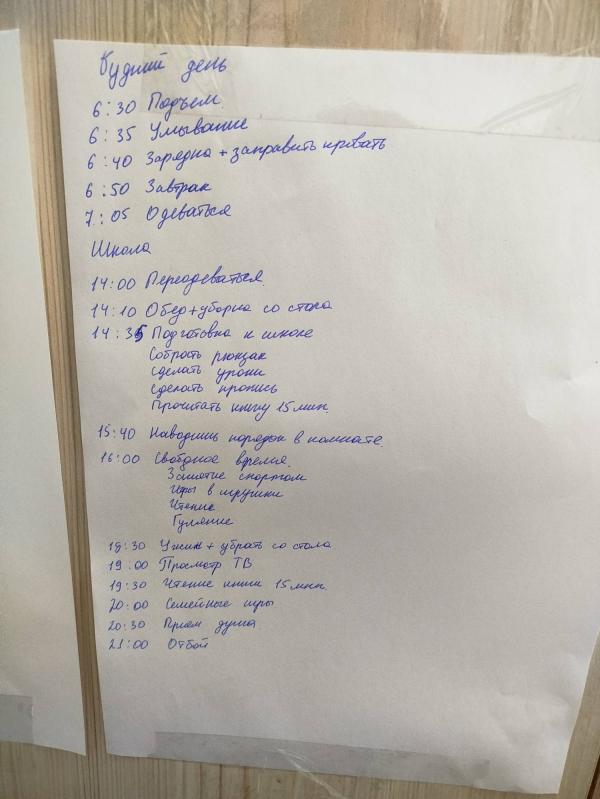 Будний день
6:30 Подъем
6:35 Умывание
6:40 Зарядка + заправить кровать
6:50 Завтрак
7:05 Одеваться
Школа
14:00 Переодеваться
14:10 Обед + уборка со стола
14:35 Подготовка к школе
Собрать рюкзак
Сделать уроки
Сделать пропись
Прочитать книгу 15 мин.
15:40 Наводишь порядок в комнате.
16:00 Свободное время.
Занятие спортом
Игры в игрушки
Чтение
Гуляние
18:30 Ужин + убрать со стола
19:00 Просмотр ТВ
19:30 Чтение книги 15 мин.
20:00 Семейные игры
20:30 Прием душа
21:00 Отбой